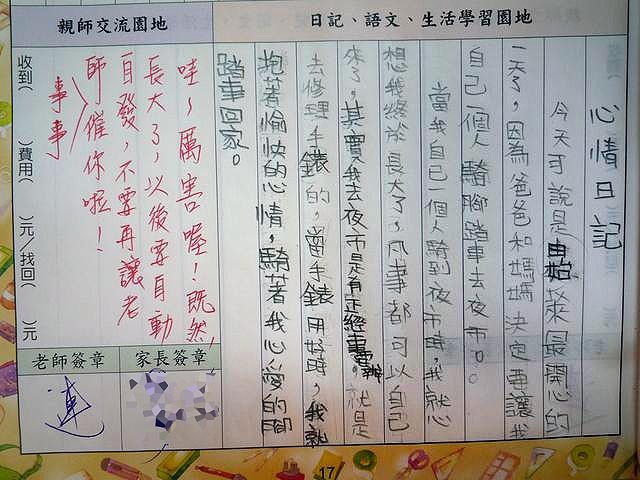 日記、語文、生活學習園地
心情日記
今天可說是由始以來最開心的
一天了,因為爸爸和媽媽決定要讓我
自己一個人騎腳踏車去夜市。
當我自己一個人騎到夜市時,我就心
想我終於長大了,凡事都可以自己
來了,其實我去夜市是有正經事要辦。就是
去修理手錶的,當手錶用好時,我就
抱著愉快的心情,騎著我心愛的腳
踏車回家。
親師交流園地
哇~厲害喔!既然
長大了,以後要自動
自發,不要再讓老
師催你啦!
事事
收到( )費用( )元/找回( )元
老師簽章
家長簽章
連
17